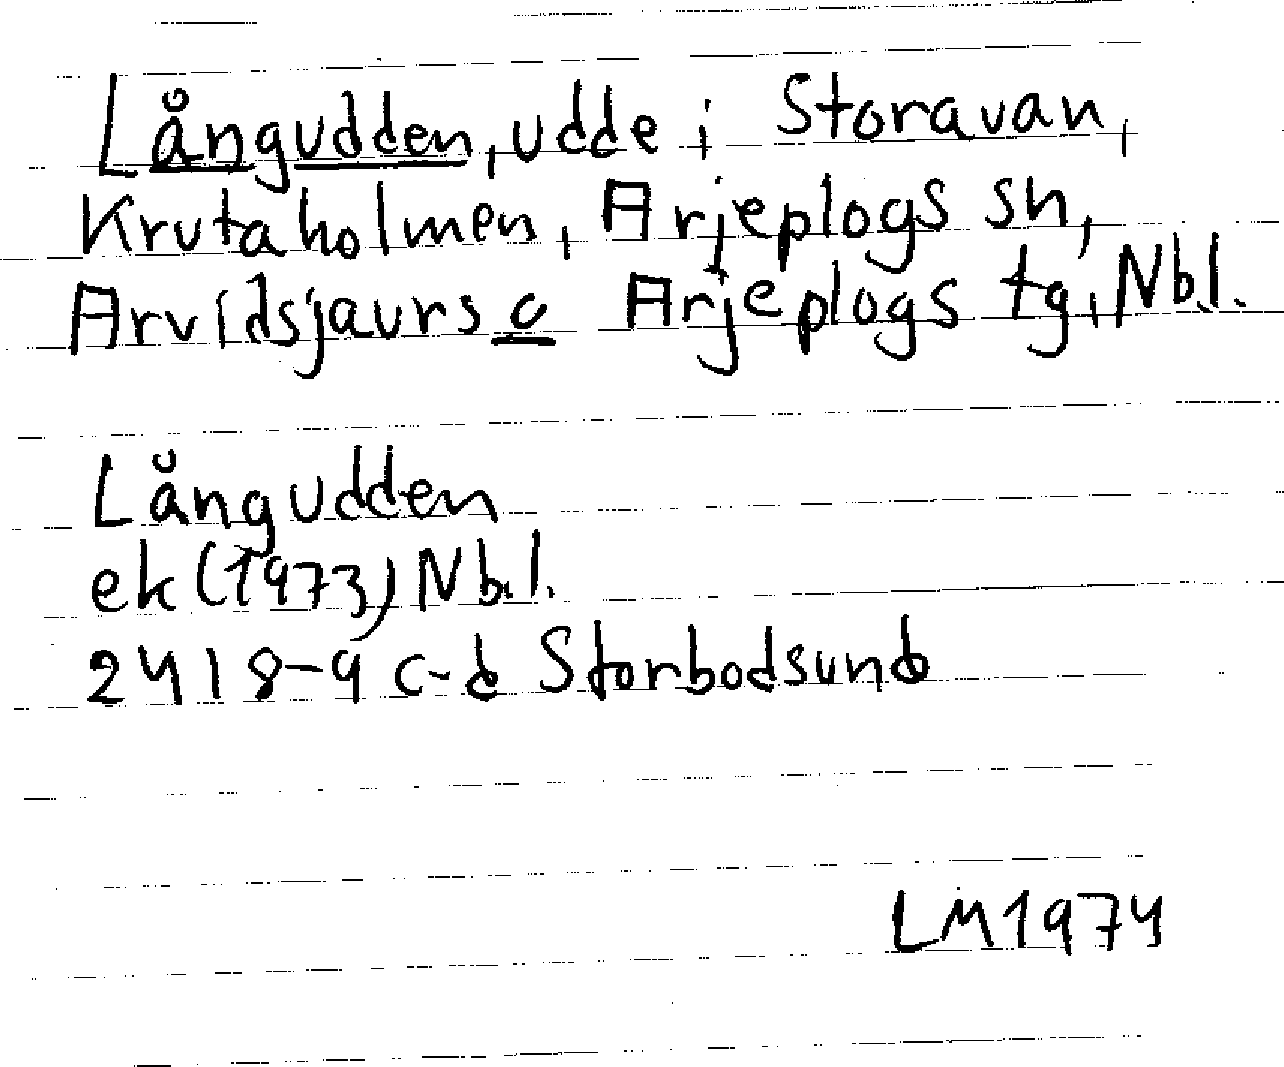 Långudden, udde i Storavan,
Krutaholmen, Arjeplogs sn,
Arvidsjaurs o Arjeplogs tg, Nbl.
Långudden
ek (1973) Nb.l.
2418-9 c-d Storbodsund
LM 1974